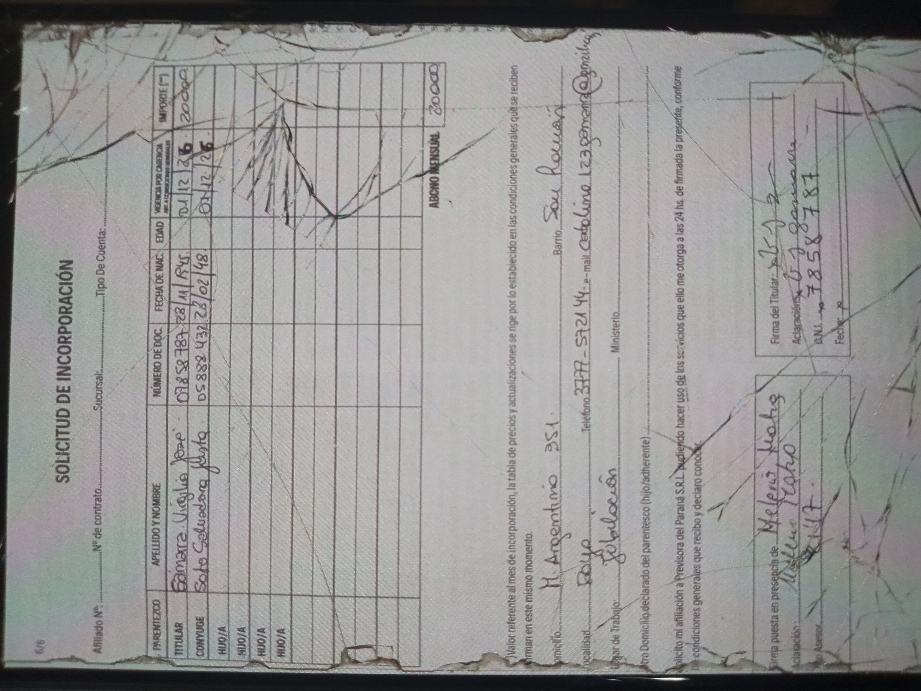 6/6
SOLICITUD DE INCORPORACIÓN
Afiliado Nº: Nº de contrato Sucursal: Tipo De Cuenta:
PARENTEZCO APELLIDO Y NOMBRE NÚMERO DE DOC. FECHA DE NAC. EDAD VIGENCIA POR CARENCIA IMPORTE (*)
TITULAR Gamarra Virgilio José 07858787 28/11/1945 01/12/26 20000
CONYUGE Soto Salvadora Justa 05888432 23/02/48. 01/12/26.
HIJO/A
HIJO/A
HIJO/A
HIJO/A
ABONO MENSUAL 20000
Valor referente al mes de incorporación, la tabla de precios y actualizaciones se rige por lo establecido en las condiciones generales que se reciben
firman en este mismo momento.
Domicilio M. Argentino 351. Barrio San Román
Localidad Goya Teléfono 3777-572144 e-mail
Lugar de Trabajo: Jubilación Ministerio
Otro Domicilio declarado del parentesco (hijo/adherente)
Solicito mi afiliación a Previsora del Paraná S.R.L. pudiendo hacer uso de los servicios que ello me otorga a las 24 hs. de firmada la presente, conforme
condiciones generales que recibo y declaro conocer.
Firma puesta en presencia de
Aclaración
Asesor
Firma del Titular:
Aclaración:
D.N.I. 7858787
Fecha: